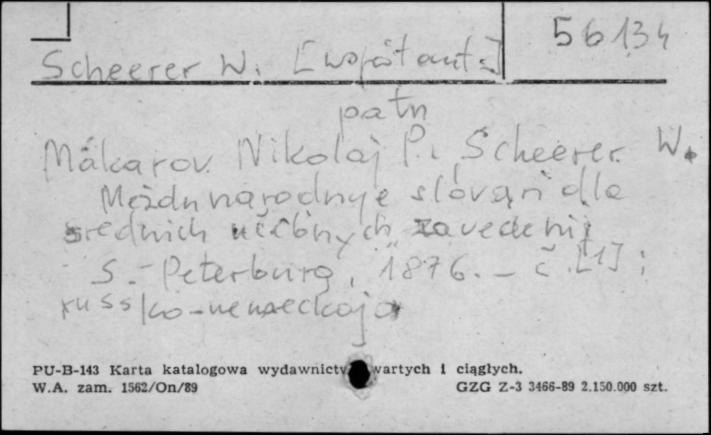 56134
Scheerer W. [współaut.]
patrz
Makarov Nikolaj P., Scheerer W.
Meždunarodnye slovari dla
srednich učebnych zavedenij
S.-Peterburg, 1876. - č. [1] :
russko-nemeckaja
PU-B-143 Karta katalogowa wydawnictw zwartych i ciągłych.
W.A. zam. 1562/On/89 GZG Z-3 3466-89 2.150.000 szt.